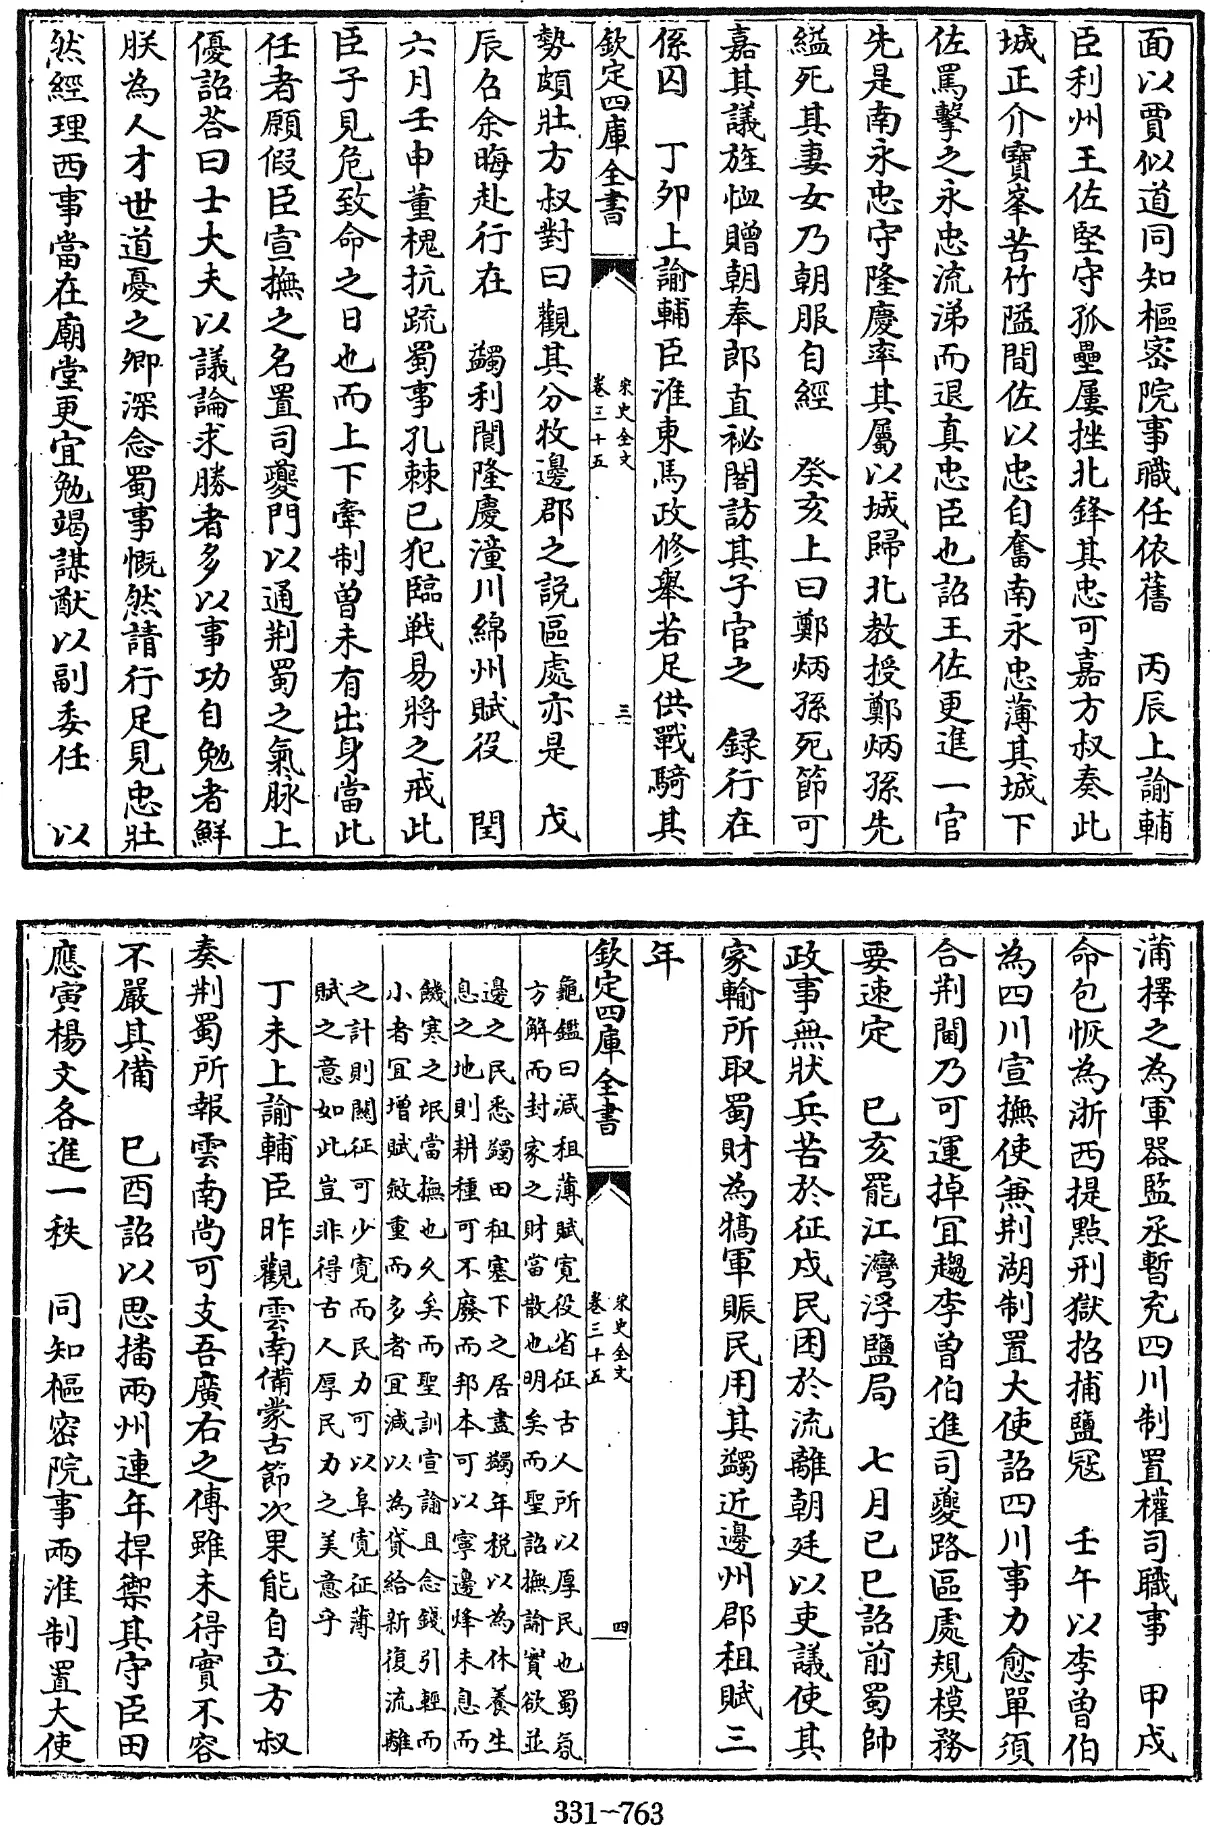 面以賈似道同知樞密院事職任依舊　丙辰上諭輔
臣利州王佐堅守孤壘屢挫北鋒其忠可嘉方叔奏此
城正介寶峯苦竹隘間佐以忠自奮南永忠薄其城下
佐罵擊之永忠流涕而退真忠臣也詔王佐更進一官
先是南永忠守隆慶率其屬以城歸北教授鄭炳孫先
縊死其妻女乃朝服自經　癸亥上曰鄭炳孫死節可
嘉其議旌恤贈朝奉郎直秘閣訪其子官之　録行在
係囚　丁夘上諭輔臣淮東馬政修舉若足供戰騎其
欽定四庫全書
宋史全文
卷三十五
三
勢頗壯方叔對曰觀其分牧邊郡之説區處亦是　戊
辰召余晦赴行在　蠲利閬隆慶潼川綿州賦役　閏
六月壬申董槐抗疏蜀事孔棘已犯臨戰易將之戒此
臣子見危致命之日也而上下牽制曽未有出身當此
任者願假臣宣撫之名置司夔門以通荆蜀之氣脉上
優詔荅曰士大夫以議論求勝者多以事功自勉者鮮
朕為人才世道憂之卿深念蜀事慨然請行足見忠壯
然經理西事當在廟堂更宜勉竭謀猷以副委任　以
蒲擇之為軍器監丞暫充四川制置權司職事　甲戌
命包恢為浙西提點刑獄招捕鹽冦　壬午以李曽伯
為四川宣撫使兼荆湖制置大使詔四川事力愈單須
合荆閫乃可運掉宜趨李曽伯進司夔路區處規模務
要速定　已亥罷江灣浮鹽局　七月已巳詔前蜀帥
政事無狀兵苦於征戍民困於流離朝廷以吏議使其
家輸所取蜀財為犒軍賑民用其蠲近邊州郡租賦三
年
欽定四庫全書
宋史全文
卷三十五
四
龜鑑曰減租薄賦寛役省征古人所以厚民也蜀氛
方解而封家之財當散也明矣而聖詔撫諭實欲並
邊之民悉蠲田租塞下之居盡蠲年税以為休養生
息之地則耕種可不廢而邦本可以寧邊烽未息而
饑寒之氓當撫也久矣而聖訓宣諭且念錢引輕而
小者宜增賦斂重而多者宜減以為貸給新復流離
之計則關征可少寛而民力可以阜寛征薄
賦之意如此豈非得古人厚民力之美意乎
丁未上諭輔臣昨觀雲南備蒙古節次果能自立方叔
奏荆蜀所報雲南尚可支吾廣右之傳雖未得實不容
不嚴其備　巳酉詔以思播兩州連年捍禦其守臣田
應寅楊文各進一秩　同知樞密院事兩淮制置大使
331-763